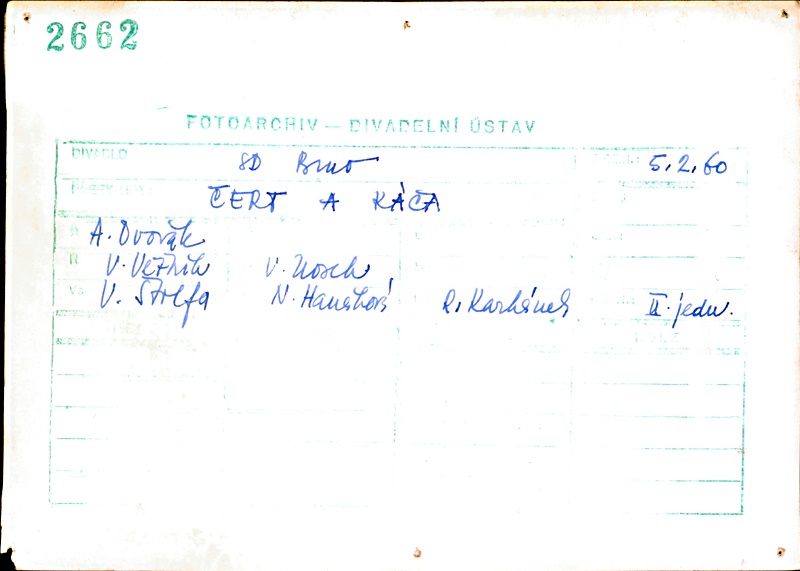 2662
FOTOARCHIV — DIVADELNÍ ÚSTAV
DIVADLO SD Brno 5.2.60
ČERT A KÁČA
A. Dvořák
R V. Věžník V. Nosek,
V. Štolfa N. Hanáková R. Karhánek II. jedn.